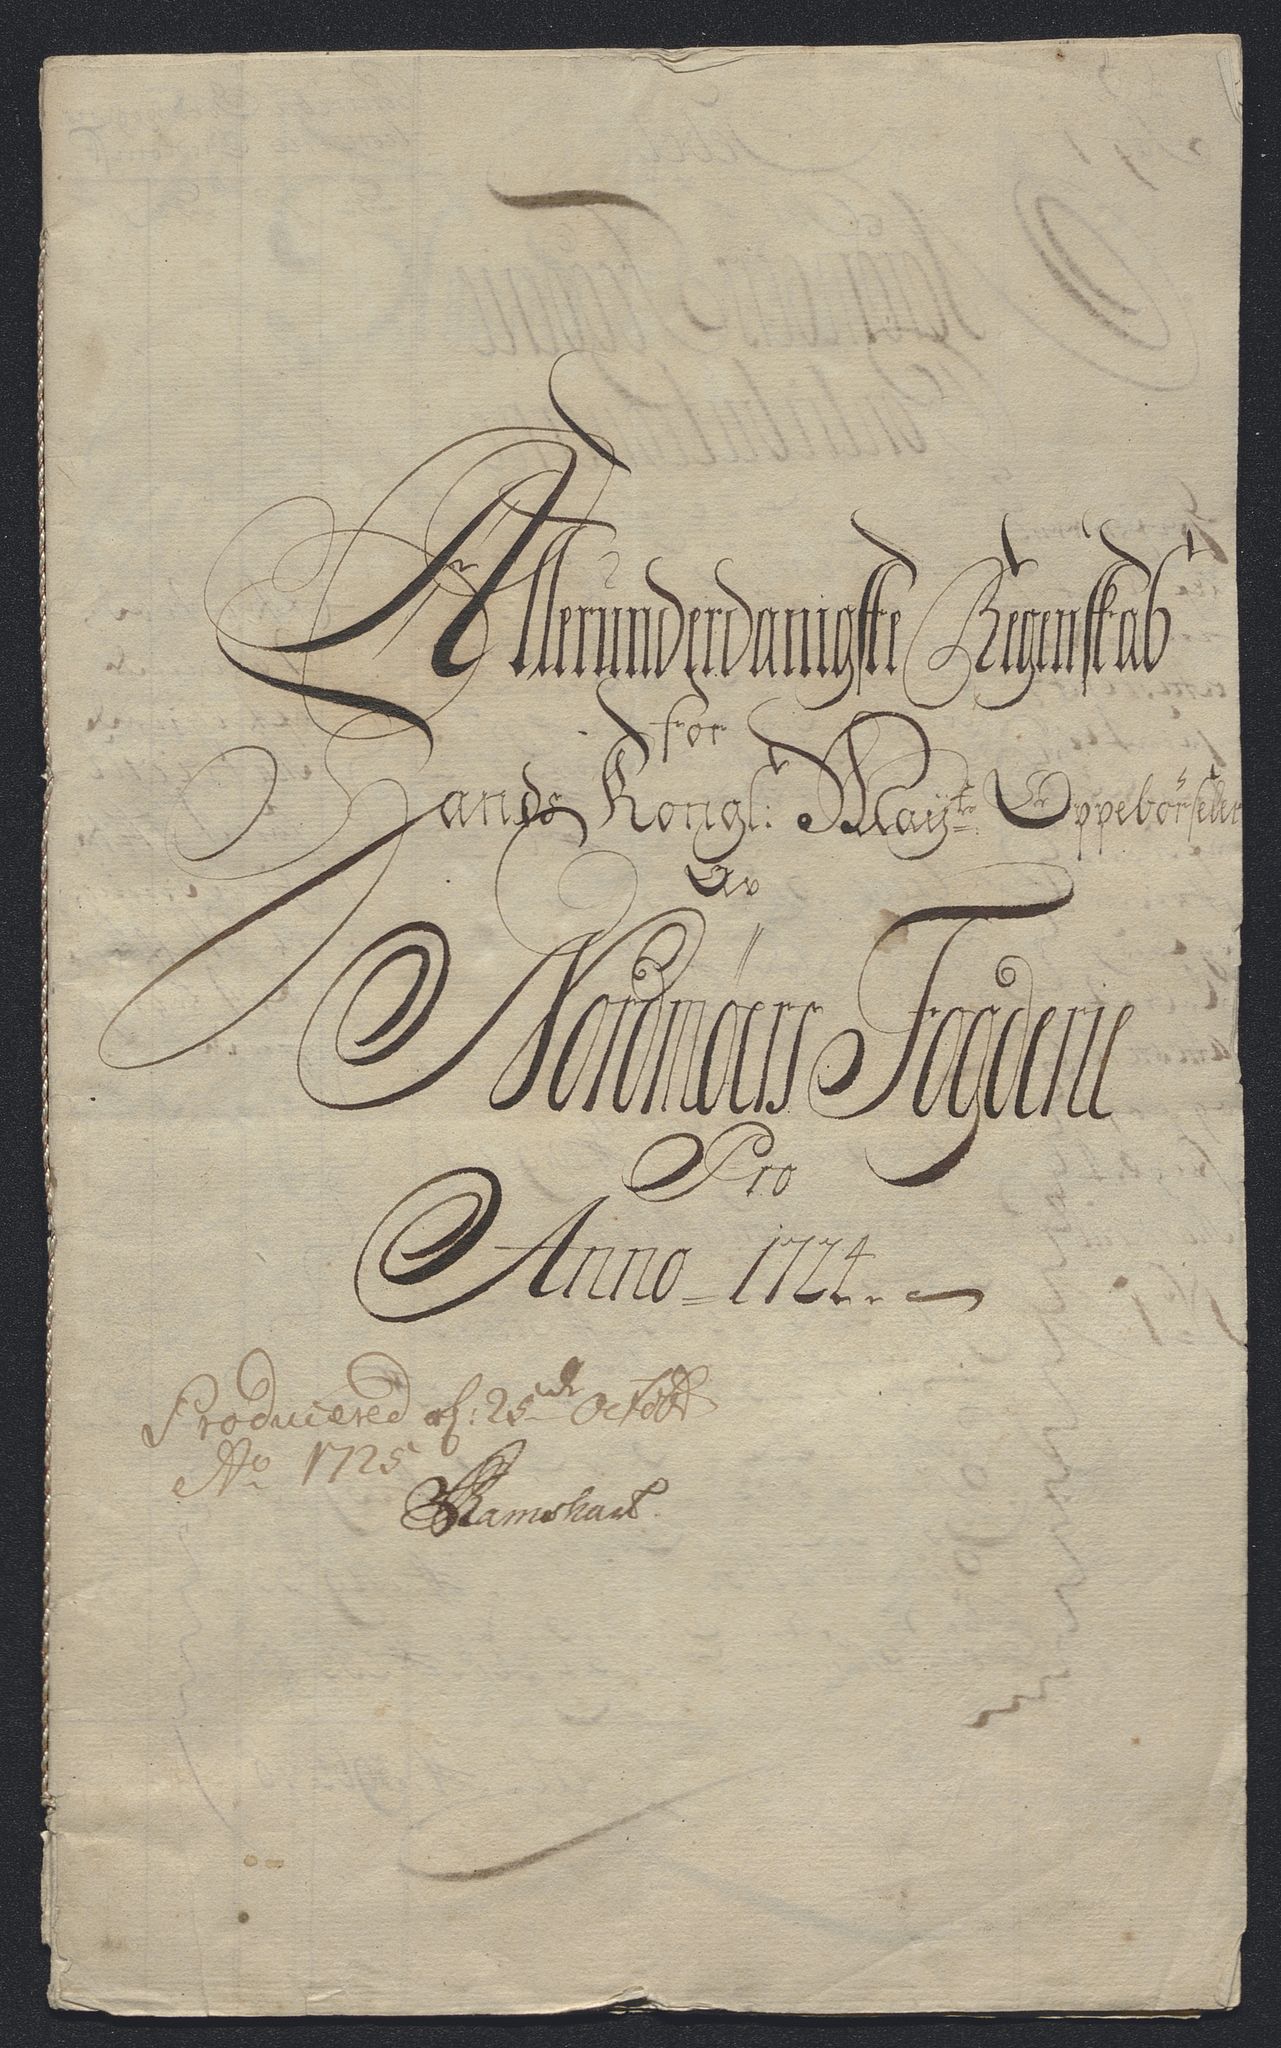 Allerunderdanigste Regenskab
for
Hands Kongl: Mayts Oppebörseler
Av
Nordmøers Fogderie
Pro
Anno = 1724.
Producered d: 25de Octobr
Ao 1725
Ramshart